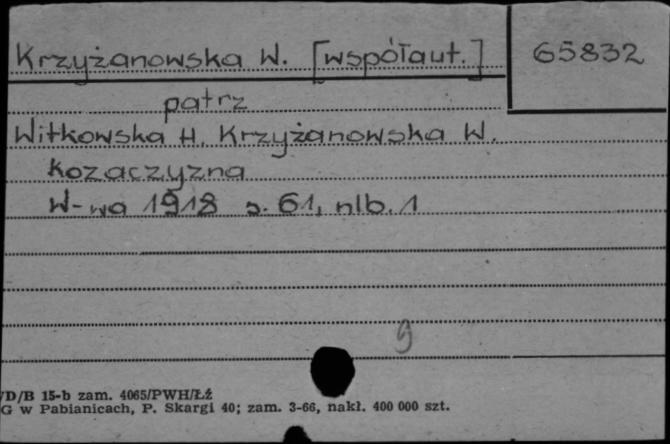 Krzyżanowska W. [współaut.]
65832
patrz
Witkowska H. Krzyżanowska W.
Kozaczyzna
W-wa 1918 s. 61, nlb. 1
g
/D/B 15-b zam. 4065/PWH/ŁŹ
G w Pabianicach, P. Skargi 40; zam. 3-66, nakł. 400 000 szt.